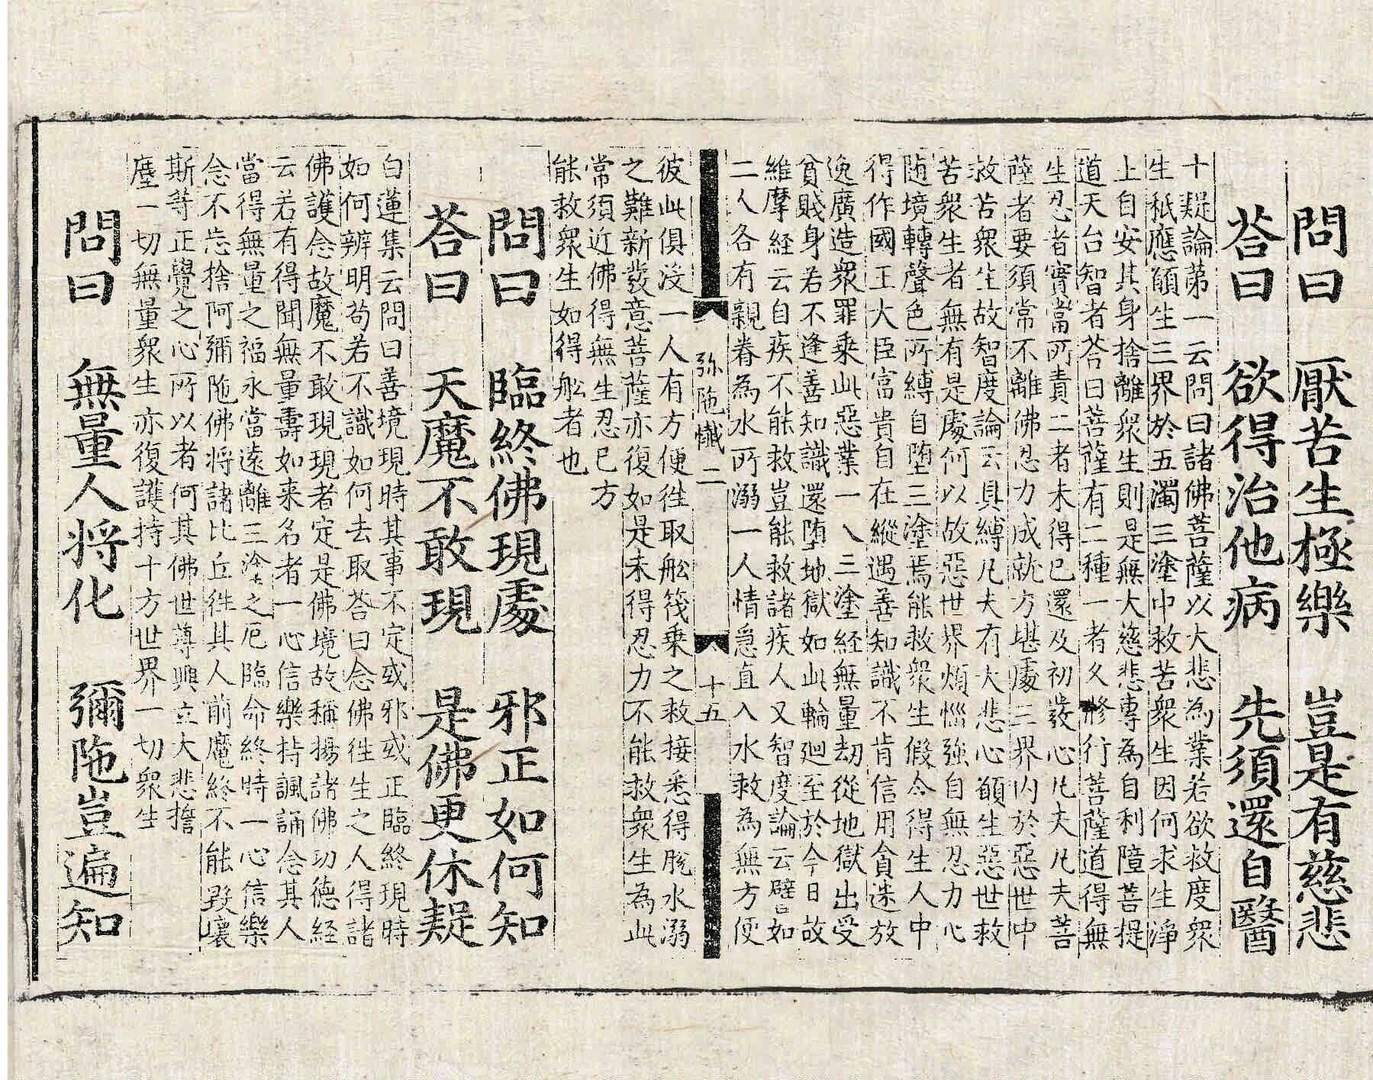 問曰　厭苦生極樂　豈是有慈悲
荅曰　欲得治他病　先須還自醫
十疑論第一云問曰諸佛菩薩以大悲為業若欲救度衆
生秖應願生三界於五濁三塗中救苦衆生因何求生淨
土自安其身捨離衆生則是無大慈悲專為自利障菩提
道天台智者荅曰菩薩有二種一者久修行菩薩道得無
生忍者實當所責二者未得已還及初發心凡夫凡夫菩
薩者要須常不離佛忍力成就方堪處三界內於惡世中
救苦衆生故智度論云具縛凡夫有大悲心願生惡世救
苦衆生者無有是處何以故惡世界煩惱強自無忍力心
随境轉聲色所縛自堕三塗焉能救衆生假令得生人中
得作國王大臣富貴自在縱遇善知識不肯信用貪迷放
逸廣造衆罪乘此惡業一入三塗經無量劫從地獄出受
貧賤身若不逢善知識還堕地獄如此輪廻至於今日故
維摩經云自疾不能救豈能救諸疾人又智度論云譬如
二人各有親眷為水所溺一人情急直入水救為無方便
弥陁懺二　十五
彼此俱没一人有方便徃取舩筏乗之救接悉得脫水溺
之難新發意菩薩亦復如是未得忍力不能救衆生為此
常須近佛得無生忍已方
能救衆生如得舩者也
問曰　臨終佛現處　邪正如何知
荅曰　天魔不敢現　是佛更休疑
白蓮集云問曰善境現時其事不定或邪或正臨終現時
如何辨明苟若不識如何去取荅曰念佛徃生之人得諸
佛護念故魔不敢現現者定是佛境故稱揚諸佛功德經
云若有得聞無量壽如来名者一心信樂持諷誦念其人
當得無量之福永當遠離三塗之厄臨命終時一心信樂
念不忘捨阿彌陁佛将諸比丘徃其人前魔終不能毀壞
斯等正覺之心所以者何其佛世尊興立大悲擔
塵一切無量衆生亦復護持十方世界一切衆生
問曰　無量人将化　彌陁豈遍知